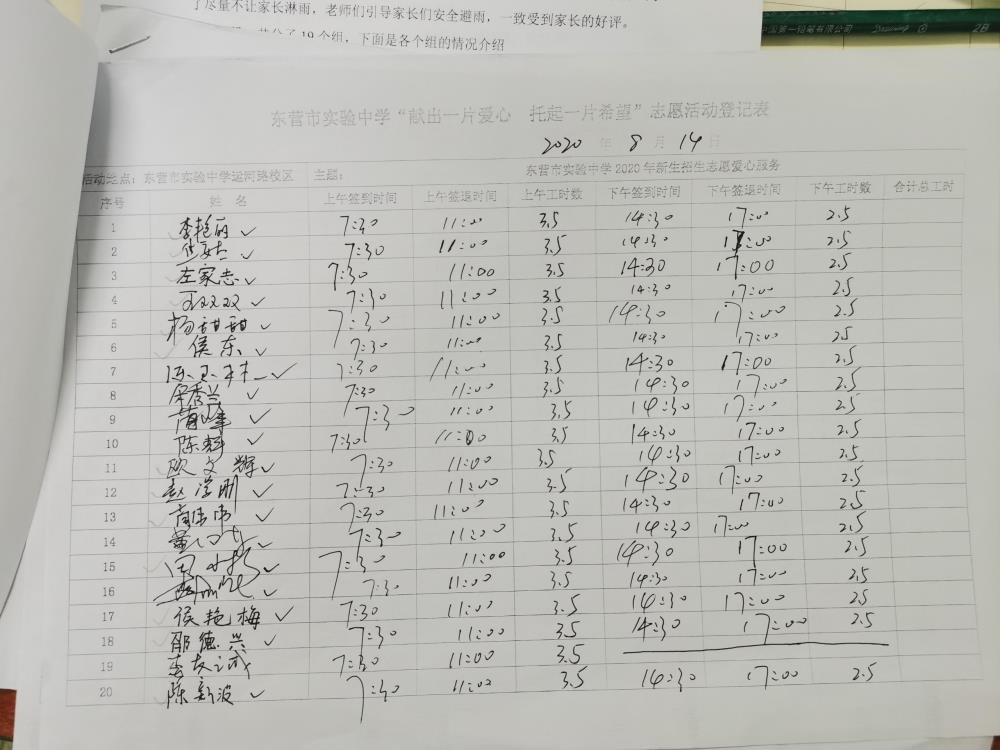 了尽量不让家长淋雨，老师们引导家长们安全避雨，一致受到家长的好评。
19个组，下面是各个组的情况介绍
中国第一铅笔有限公司 Drawing 2B
东营市实验中学“献出一片爱心 托起一片希望”志愿活动登记表
2020 年 8 月 14 日
活动地点：东营市实验中学运河路校区 主题： 东营市实验中学2020年新生招生志愿爱心服务
序号 姓 名 上午签到时间 上午签退时间 上午工时数 下午签到时间 下午签退时间 下午工时数 合计总工时
1 李艳丽 ✓ 7:30 11:00 3.5 14:30 17:00 2.5
2 ✓ 7:30 11:00 3.5 14:30 17:00 2.5
3 左家志 ✓ 7:30 11:00 3.5 14:30 17:00 2.5
4 王双双 ✓ 7:30 11:00 3.5 14:30 17:00 2.5
5 杨甜甜 ✓ 7:30 11:00 3.5 14:30 17:00 2.5
6 侯东 ✓ 7:30 11:00 3.5 14:30 17:00 25
7 ✓ 7:30 11:00 3.5 14:30 17:00 2.5
8 ✓ 7:30 11:00 3.5 14:30 17:00 2.5
9 ✓ 7:30 11:00 3.5 14:30 17:00 2.5
10 陈辉 ✓ 7:30 11:00 3.5 14:30 17:00 2.5
11 欧文辉 ✓ 7:30 11:00 3.5 14:30 17:00 2.5
12 ✓ 7:30 11:00 3.5 14:30 17:00 2.5
13 ✓ 7:30 11:00 3.5 14:30 17:00 2.5
14 ✓ 7:30 11:00 3.5 14:30 17:00 2.5
15 7:30 11:00 3.5 14:30 17:00 2.5
16 ✓ 7:30 11:00 3.5 14:30 17:00 2.5
17 侯艳梅 ✓ 7:30 11:00 3.5 14:30 17:00 2.5
18 邵德兴 ✓ 7:30 11:00 3.5 14:30 17:00 2.5
19 李友诚 7:30 11:00 3.5
20 陈新波 ✓ 7:30 11:00 3.5 14:30 17:00 2.5